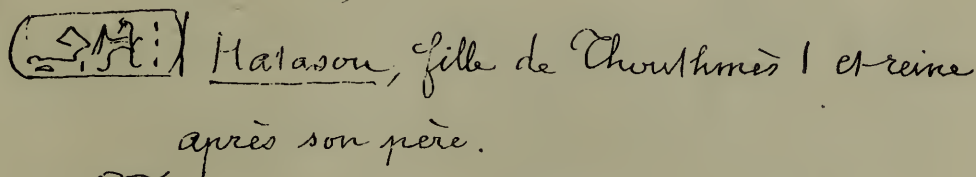 Hatasou, fille de Thouthmès I et reine
après son père.